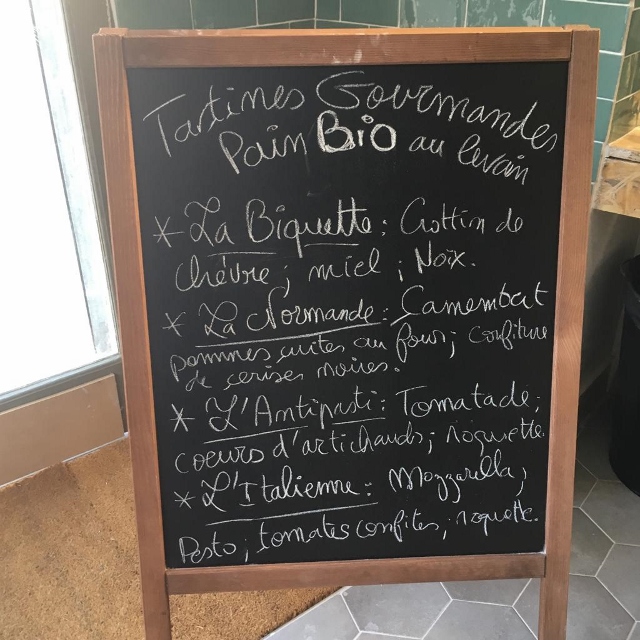 Tartines Gourmandes
Pain Bio au levain
* La Biquette : Crottin de
chèvre ; miel ; Noix.
* La Normande : Camembert
pommes cuites au four ; confiture
de cerises noires.
* L'Antipasti : Tomatade ;
coeurs d'artichauds ; roquette.
* L'Italienne : Mozzarella ;
Pesto ; tomates confites ; roquette.